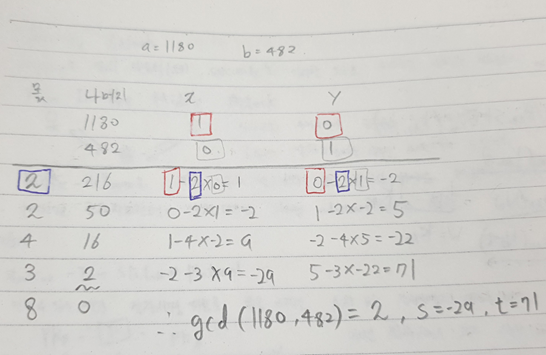 a=1180 b=482
몫 나머지 x Y
1180 1 0
482 0 1
2 216 1-2×0=1 0-2×1=-2
2 50 0-2×1=-2 1-2×-2=5
4 16 1-4×-2=9 -2-4×5=-22
3 2 -2-3×9=-29 5-3×-22=71
8 0 ∴ gcd(1180,482)=2, s=-29, t=71